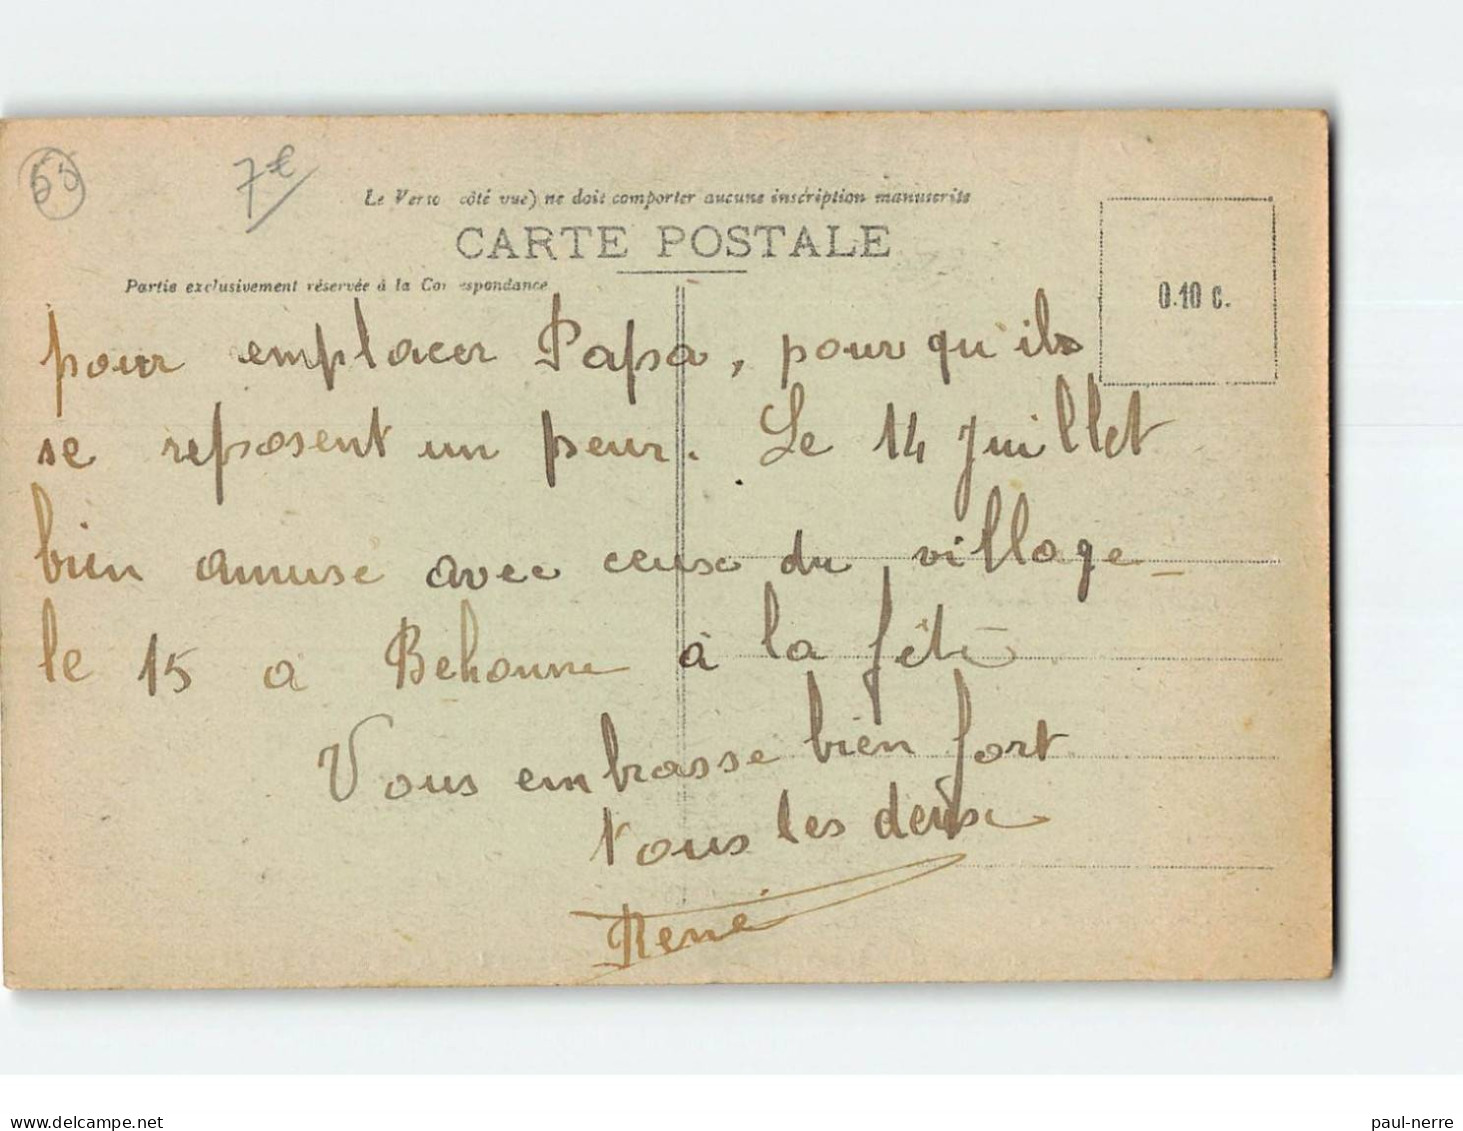 55
7€
Le Verso côté vue) ne doit comporter aucune inscription manuscrite
CARTE POSTALE
Partie exclusivement réservée à la Correspondance
0.10 c.
pour emplacer Papa, pour qu'ils
se reposent un peur. Le 14 Juillet
bien amuse avec ceux du village
le 15 a Behonne à la fête
Vous embrasse bien fort
tous les deux
René
delcampe.net
paul-nerre